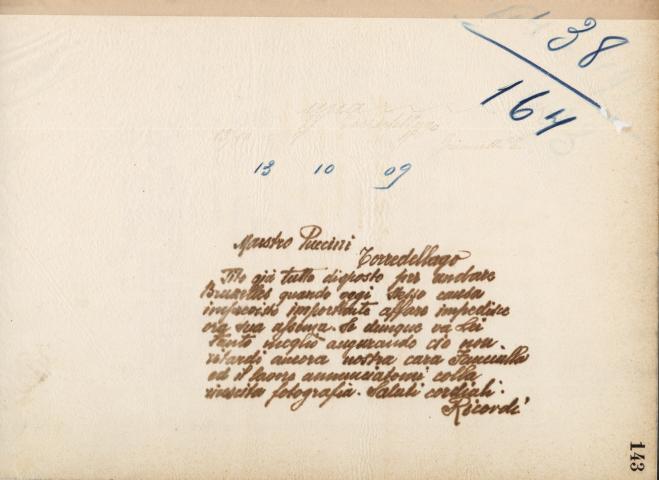 38
164
13 10 09
Maestro Puccini
Torredellago
Tito già tutto disposto per andare
Bruxelles quando oggi stesso causa
imprevisto importante affare impedisce
ora sua assenza. Se dunque va Lei
tanto meglio augurando ciò non
ritardi ancora nostra cara Fanciulla
ed il lavoro annunciatomi colla
riuscita fotografia. Saluti cordiali.
Ricordi
143